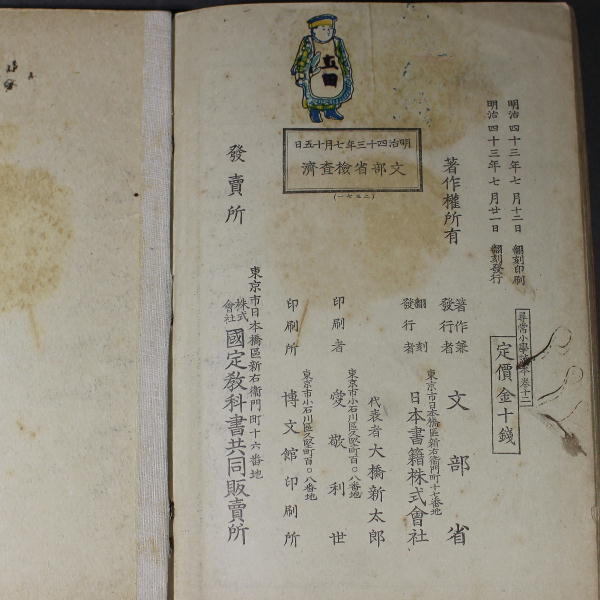 明治四十三年七月十二日 翻刻印刷
明治四十三年七月廿一日 翻刻發行
尋常小學讀本 卷十二
定價金十錢
著作權所有
明治四十三年七月十五日
文部省檢查濟
(二三七一)
立田
著作兼發行者 文部省
東京市日本橋區新右衞門町十七番地
翻刻發行者 日本書籍株式會社
代表者 大橋新太郎
東京市小石川區久堅町百〇八番地
印刷者 愛敬利世
東京市小石川區久堅町百〇八番地
印刷所 博文館印刷所
發賣所
東京市日本橋區新右衞門町十六番地
株式會社 國定教科書共同販賣所